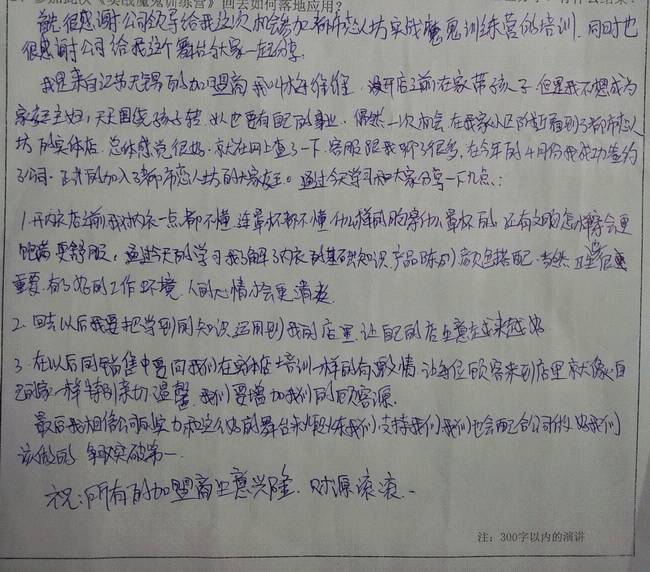 实战魔鬼训练营》回去如何落地应用?
首先很感谢公司领导给我这次机会参加都市恋人坊实战魔鬼训练营的培训,同时也
很感谢公司给我这个舞台与大家一起分享。
我是来自江苏无锡的加盟商 我叫 没开店之前在家带孩子 但是我不想成为
家庭主妇,天天围绕孩子转 以也要有自己的事业,偶然一次机会 在我家小区附近看到了都市恋人
坊的实体店 总体感觉很好,就在网上查了一下 客服跟我聊了很多,在今年的4月份我成功签约
了公司 正式的加入了都市恋人坊的大家庭。通过今天学习和大家分享一下几点:
1.开内衣店之前我对内衣一点都不懂,连罩杯都不懂 什么样的胸穿什么罩杯的 还有文胸怎样穿会更
饱满 更舒服,通过今天的学习 我了解了内衣的基础知识 产品陈列 颜色搭配 当然 卫生很重
重要 有了好的工作环境 人的心情才会更
2.回去以后我要把学到的知识 运用到我的店里 让自己的店生意越来越好
3.在以后同销售中要向我们在实体店培训一样的有激情 让每位顾客来到店里就像自
己的家一样特别亲切 温馨 我们要增加我们的顾客源
最后我相信公司的实力和这么好的舞台来 我们 支持我们 我们也会配合公司做好我们
该做的 争取突破第一
祝:所有的加盟商生意兴隆 财源滚滚
注:300字以内的演讲